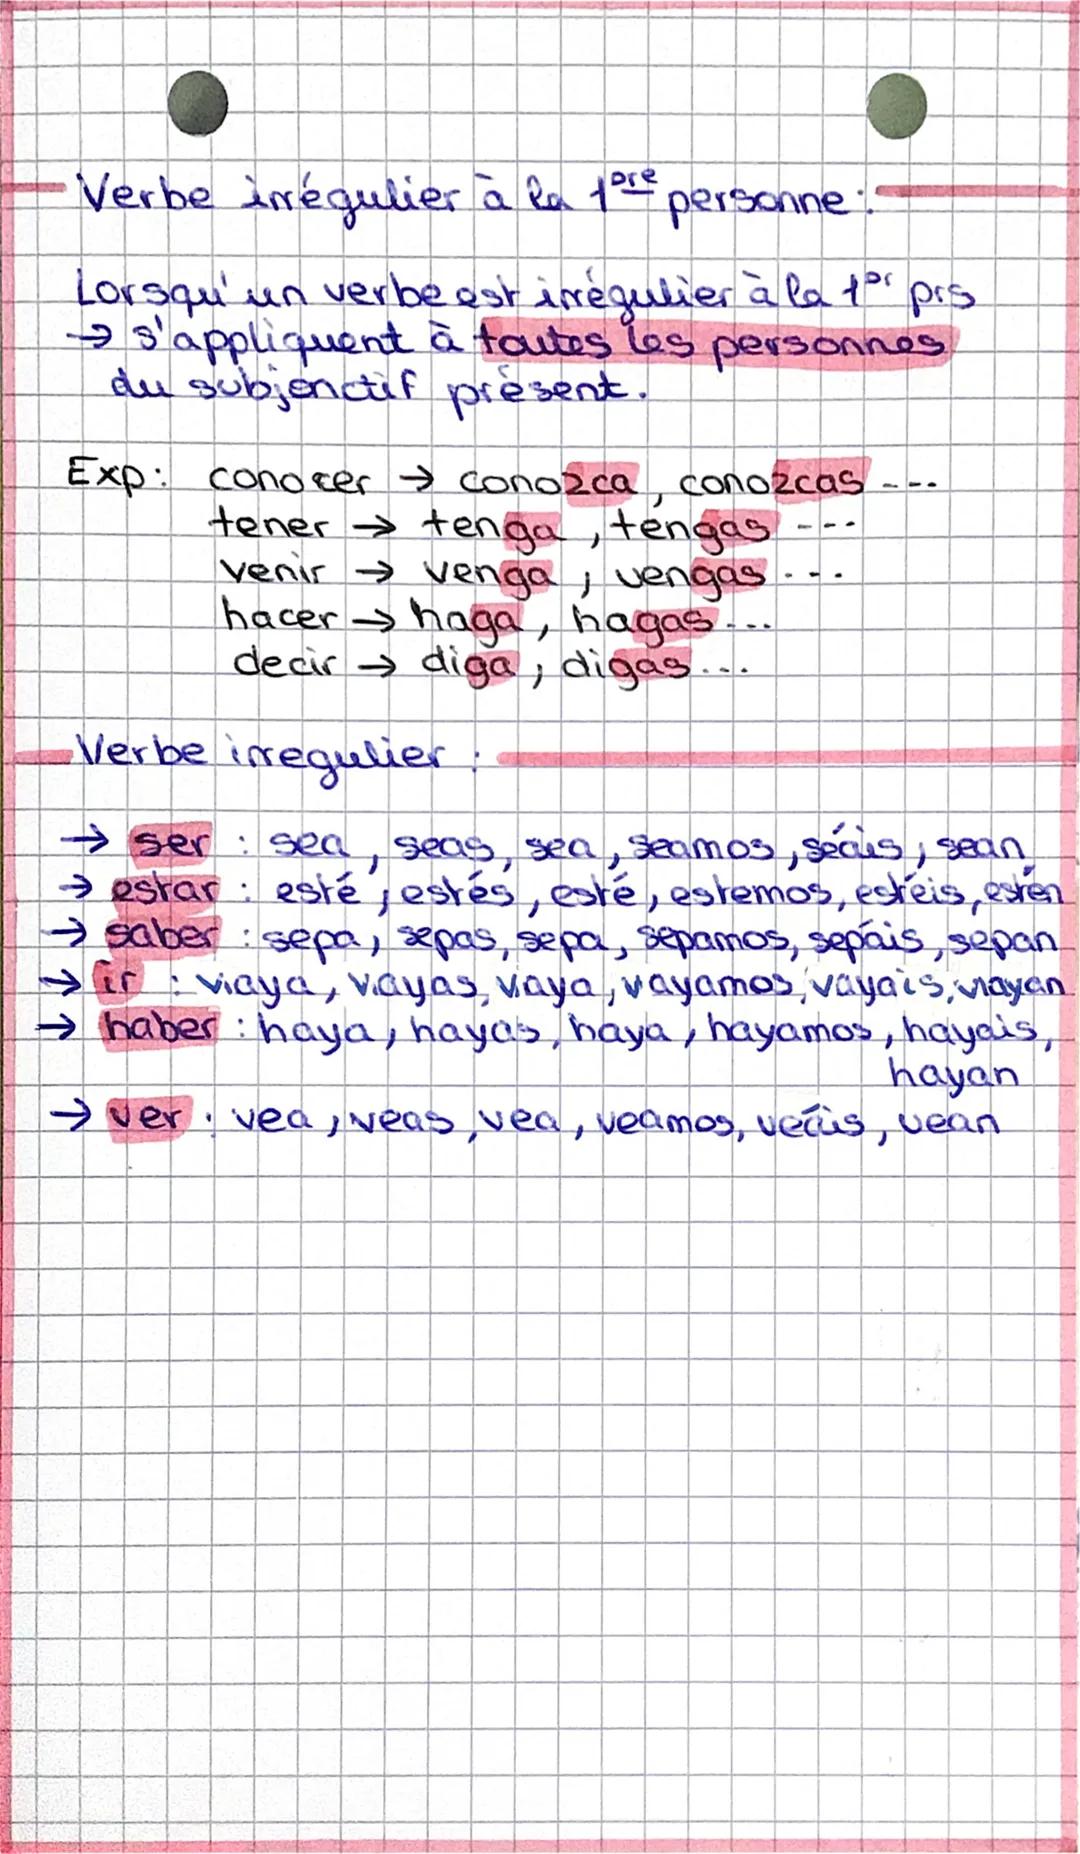 Verbe irrégulier à la 1ère personne :
Lorsqu'un verbe est irrégulier à la 1er prs
→ s'appliquent à toutes les personnes
du subjonctif présent.
Exp: conocer → conozca, conozcas ---
tener → tenga, téngas ---
venir → venga, vengas ---
hacer → haga, hagas ...
decir → diga, digas ...
Verbe irregulier :
→ ser : sea, seas, sea, seamos, séáis, sean
→ estar : esté, estés, esté, estemos, estéis, estén
→ saber : sepa, sepas, sepa, sepamos, sepáis, sepan
→ ir : vaya, vayas, vaya, vayamos, vayais, vayan
→ haber : haya, hayas, haya, hayamos, hayais,
hayan
→ ver : vea, veas, vea, veamos, veáis, vean